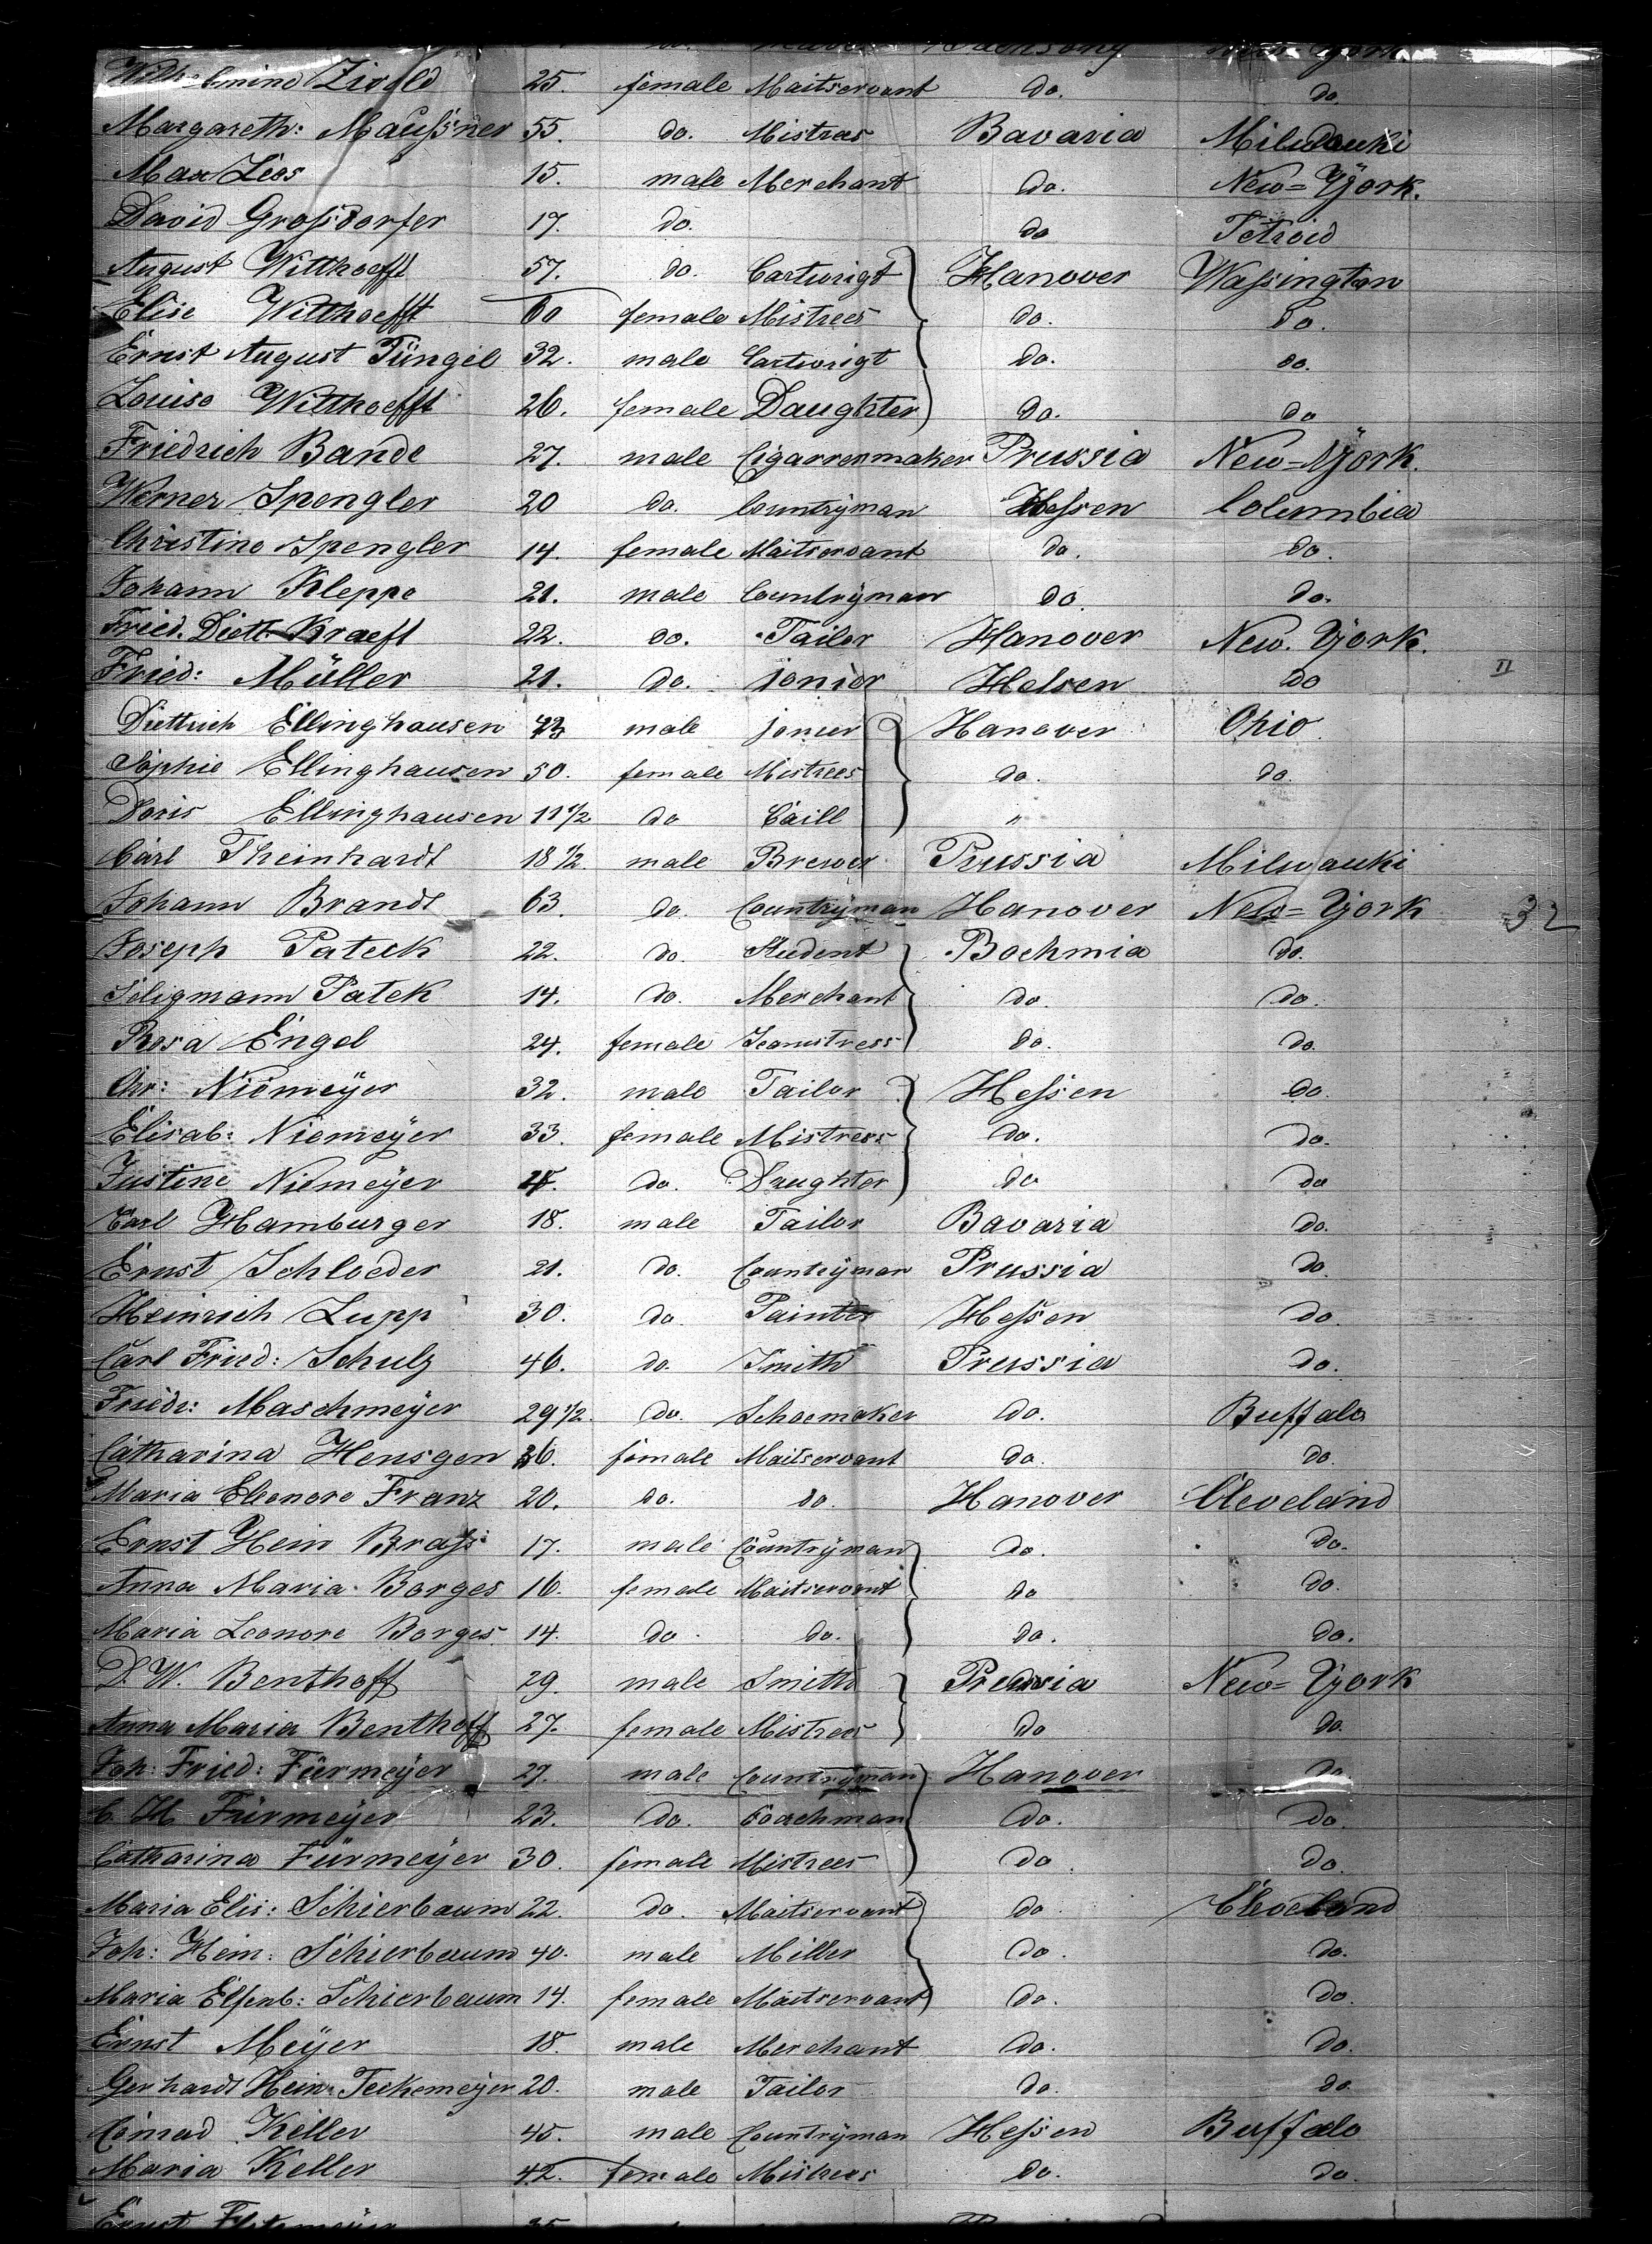 Saxony New-York
Wilhelmine Zivold 25. female Maitservant do. do.
Margareth: Maußner 55. do. Mistres Bavaria Milwauki
Max Zios 15. male Merchant do. New=Yjork.
David Großdorfer 17. do. do Tetroid
August Witthoefft 57. do. Cartwrigt Hanover Wassington
Elise Witthoefft 60 female Mistrees do. do.
Ernst August Tüngel 32. male Cartwrigt do. do.
Louise Witthoefft 26. female Daughter do. do
Friedrich Bande 27. male Cigarrenmaker Prussia New=Yjork.
Werner Spengler 20 do. Countryman Hessen Columbia
Christine Spengler 14. female Maitservant do. do.
Johann Kleppe 21. male Countryman do. do.
Fried. Diett. Kraeft 22. do. Tailor Hanover New-Yjork.
Fried: Müller 21. do. jonier Helsen do II
Diettrich Ellinghausen 43 male joneer Hanover Ohio
Sophie Ellinghausen 50. female Mistrees do. do.
Doris Ellinghausen 11 1/2 do Caill "
Carl Theinhardt 18 1/2. male Brewer Prussia Milwauki
Johann Brandt 63. do. Countryman Hanover New=Yjork 32
Joseph Pateck 22. do. Student Boehmia do.
Seligmann Patek 14. do. Merchant do. do.
Rosa Engel 24. female Seamstress do. do.
Chr: Niemeÿer 32. male Tailor Hessen do.
Elisab: Niemeÿer 33. female Mistress do. do.
Justine Niemeÿer do. Daughter do do
Carl Hamburger 18. male Tailor Bavaria do.
Ernst Schloeder 21. do. Countryman Prussia do.
Heinrich Lupp 30. do. Painter Hessen do.
Carl Fried: Schulz 46. do. Smith Prussia do.
Friedr: Maschmeÿer 29 1/2. do. Schoemaker do. Buffalo
Catharina Hensgen 36. female Maitservant do. do.
Maria Eleonore Franz 20. do. do. Hanover Cleveland
Ernst Hein Braß 17. male Countryman do. do.
Anna Maria Borges 16. female Maitservant do do.
Maria Leonore Borges 14. do. do. do. do.
D. W. Benthoff 29. male Smith Prussia New=Yjork
Anna Maria Benthoff 27. female Mistrees do do.
Joh: Fried: Fürmeÿer 27. male Countryman Hanover do
C. H. Fürmeÿer 23. do. Coachman do. do.
Catharina Fürmeÿer 30. female Mistrees do do.
Maria Elis: Schierbaum 22. do. Maitservant do. Cleveland
Joh: Hein: Schierbaum 40. male Miller do. do.
Maria Elsenb: Schierbaum 14. female Maitservant do. do.
Ernst Meÿer 18. male Merchant do. do.
Gerhardt Hein: Teckemeÿer 20. male Tailor do. do.
Conrad Keller 45. male Countryman Hessen Buffalo
Maria Keller 42. female Mistrees do. do.
Ernst 35